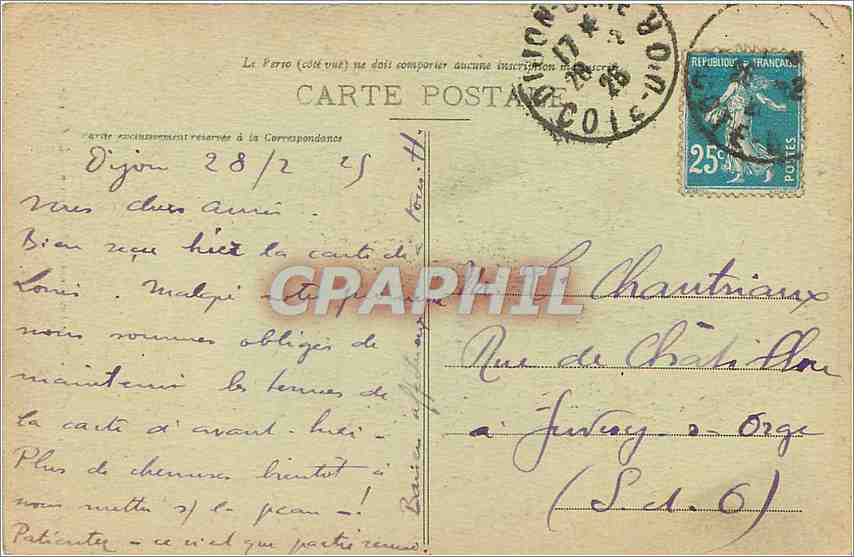 Le Perso (côté vue) ne doit comporter aucune inscription manuscrite
CARTE POSTALE
Partie exclusivement réservée à la Correspondance
DIJON-GARE
17 * 2
28 25
COTE-D'OR
REPUBLIQUE FRANÇAISE
25c
POSTES
Dijon 28/2 25
Mes chers amis.
Bien reçu hier la carte de
Louis. Malgré
nous sommes obligés de
maintenir les termes de
la carte d'avant-hier -
Plus de chemises bientôt à
nous mettre s/ la peau -!
Patientez - ce n'est que partie remise.
Baisers affectueux à tous. H.
L. Chantriaux
Rue de Châtillon
à Juvisy-s-Orge
(S. et. O)
CPAPHIL